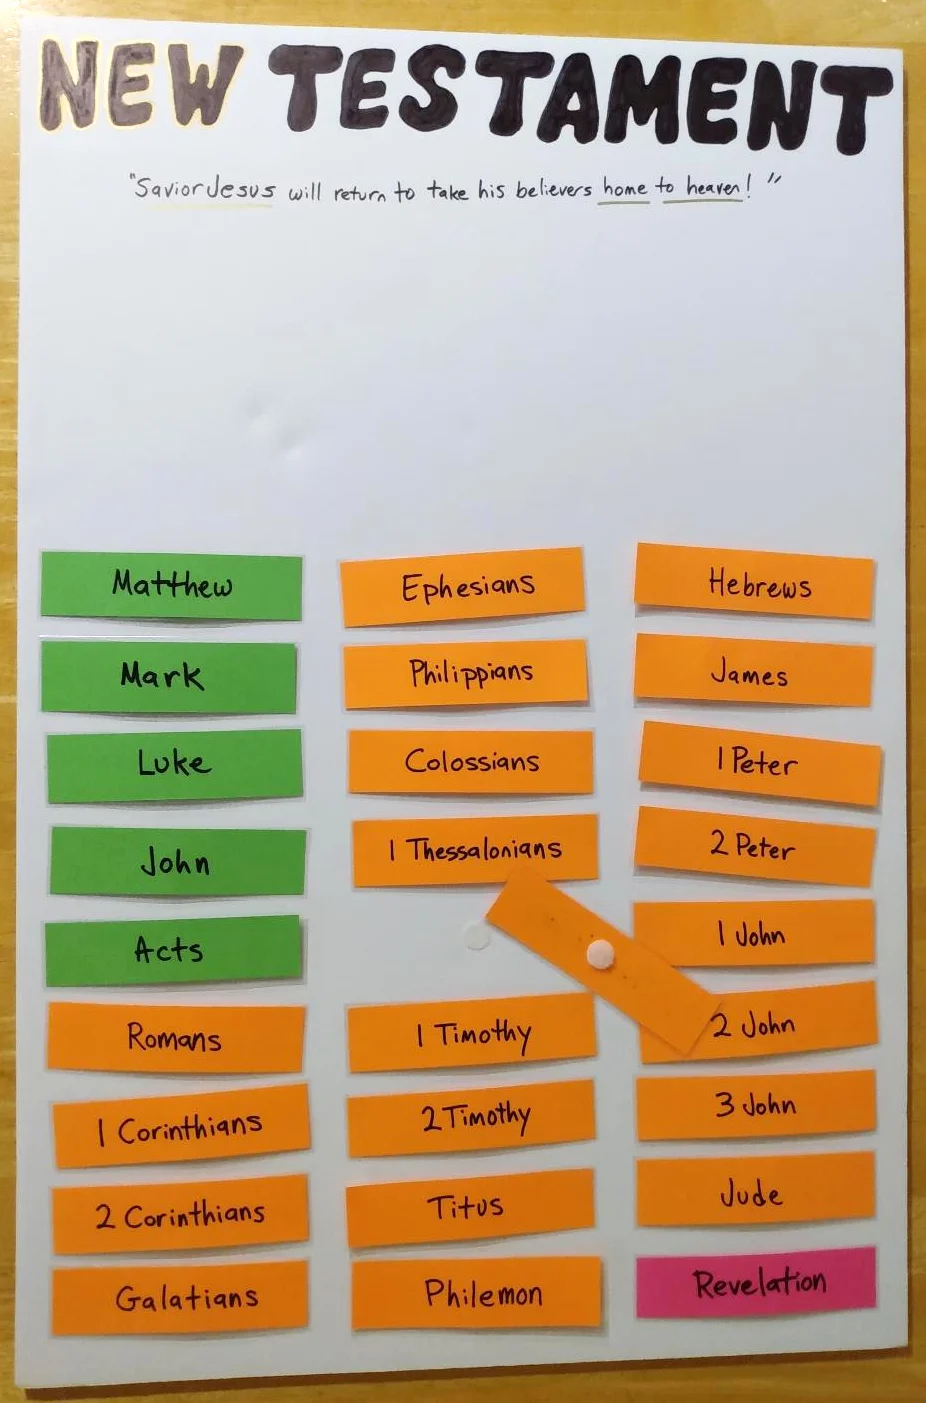 NEW TESTAMENT
"Savior Jesus will return to take his believers home to heaven!"
Matthew
Mark
Luke
John
Acts
Romans
1 Corinthians
2 Corinthians
Galatians
Ephesians
Philippians
Colossians
1 Thessalonians
1 Timothy
2 Timothy
Titus
Philemon
Hebrews
James
1 Peter
2 Peter
1 John
2 John
3 John
Jude
Revelation